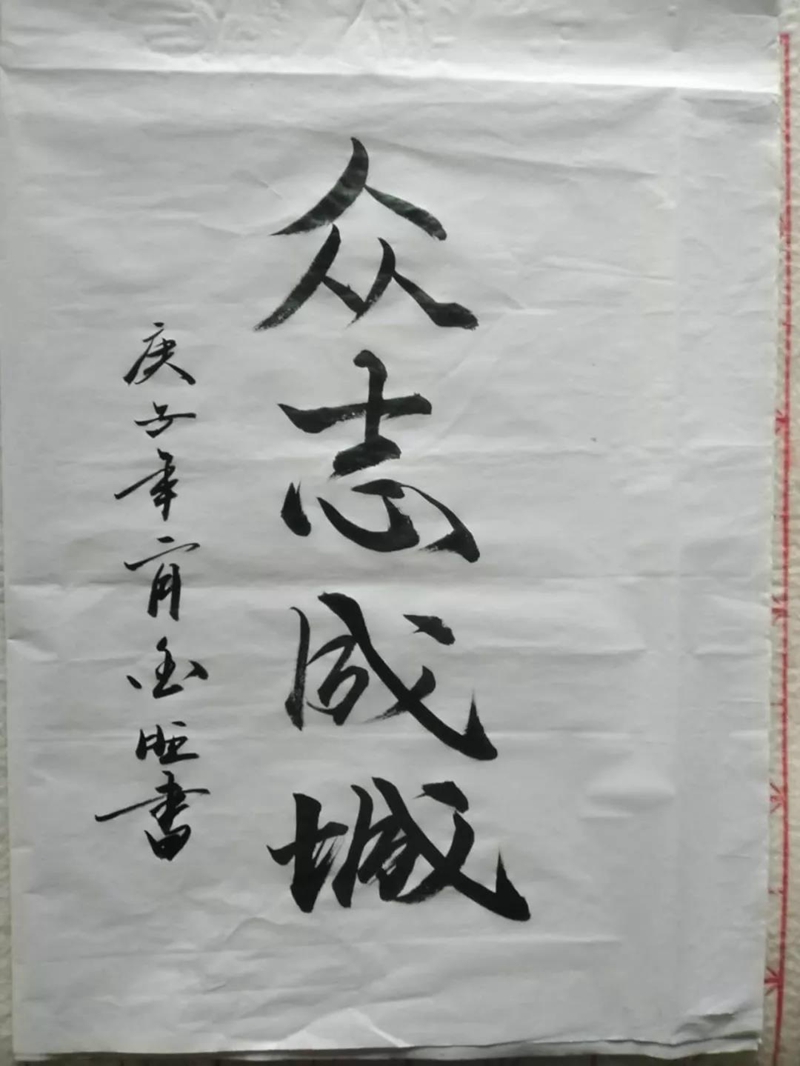 众志成城
庚子年二月金旺书